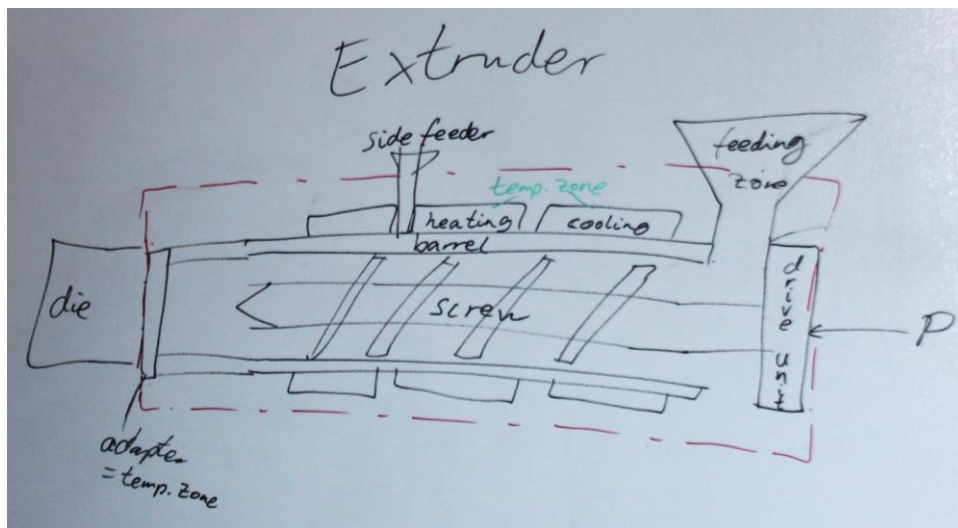 Extruder
side feeder
feeding
zone
temp. zone
heating
cooling
barrel
die
screw
drive unit
P
adapter
= temp. zone